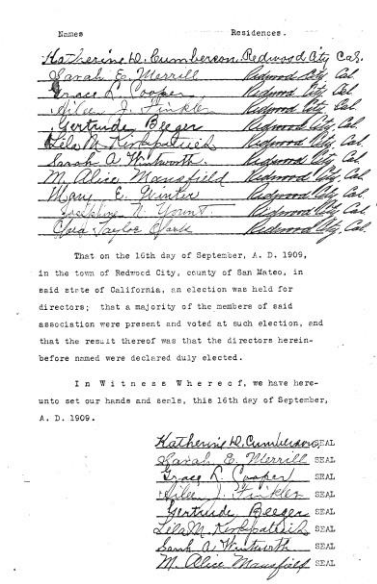 Names Residences.
Katherine D. Cumberson. Redwood City Cal.
Sarah E. Merrill Redwood City, Cal.
Grace L. Cooper Redwood City, Cal.
J. Finkler Redwood City, Cal.
Gertrude Beeger Redwood City, Cal.
Lila M. Kirkpatrick Redwood City, Cal.
Sarah A Wentworth Redwood City, Cal.
M. Alice Mansfield Redwood City, Cal.
Mary E. Winter Redwood City, Cal.
Josephine N. Yount. Redwood City, Cal.
Taylor Redwood City, Cal.
That on the 16th day of September, A. D. 1909,
in the town of Redwood City, county of San Mateo, in
said state of California, an election was held for
directors; that a majority of the members of said
association were present and voted at such election, and
that the result thereof was that the directors herein-
before named were declared duly elected.
In Witness Whereof, we have here-
unto set our hands and seals, this 16th day of September,
A. D. 1909.
Katherine D. Cumberson SEAL
Sarah E. Merrill SEAL
Grace L. Cooper SEAL
J. Finkler SEAL
Gertrude Beeger SEAL
Lila M. Kirkpatrick SEAL
Sarah A Wentworth SEAL
M. Alice Mansfield SEAL